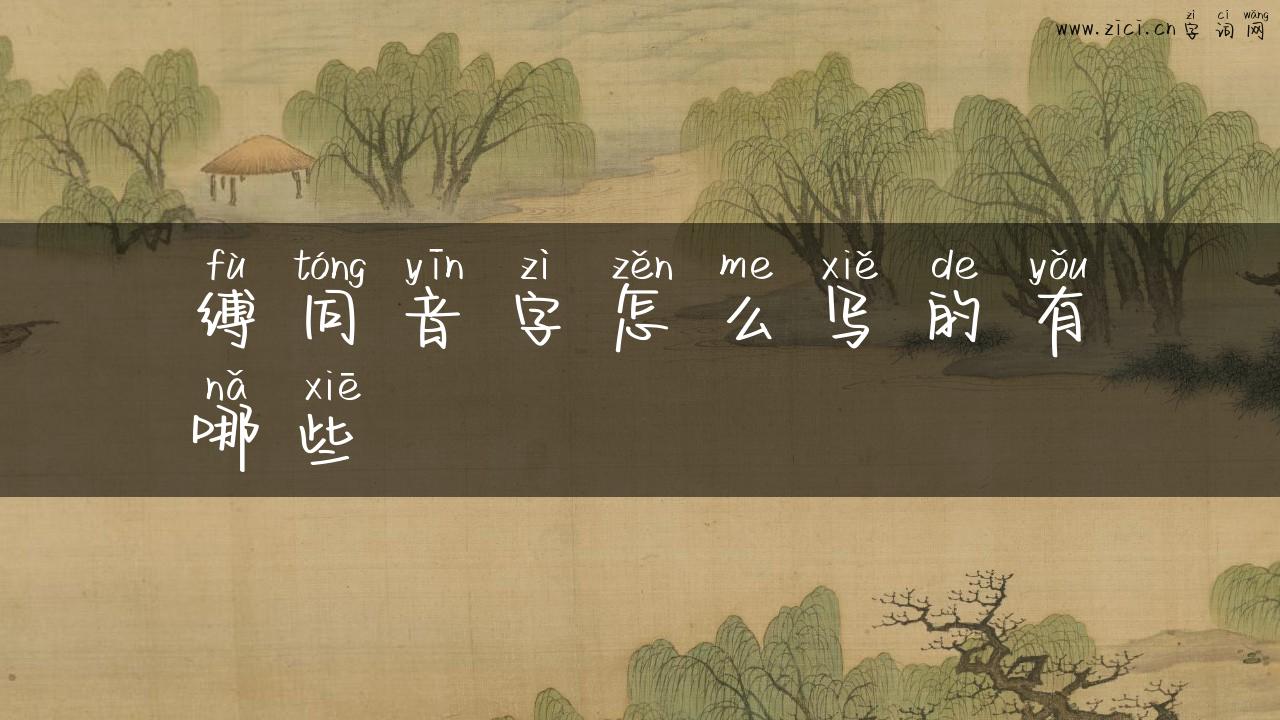 zì cí wǎng
www.zici.cn 字词网
fù tóng yīn zì zěn me xiě de yǒu
缚同音字怎么写的有
nǎ xiē
哪些